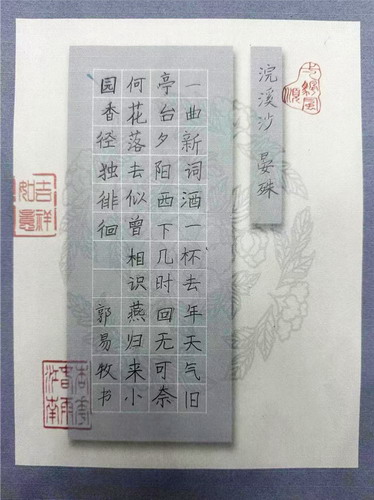 浣溪沙 晏殊
一曲新词酒一杯去年天气旧
亭台夕阳西下几时回无可奈
何花落去似曾相识燕归来小
园香径独徘徊 郭易牧书
吉祥
如意
杏花
春雨
江南